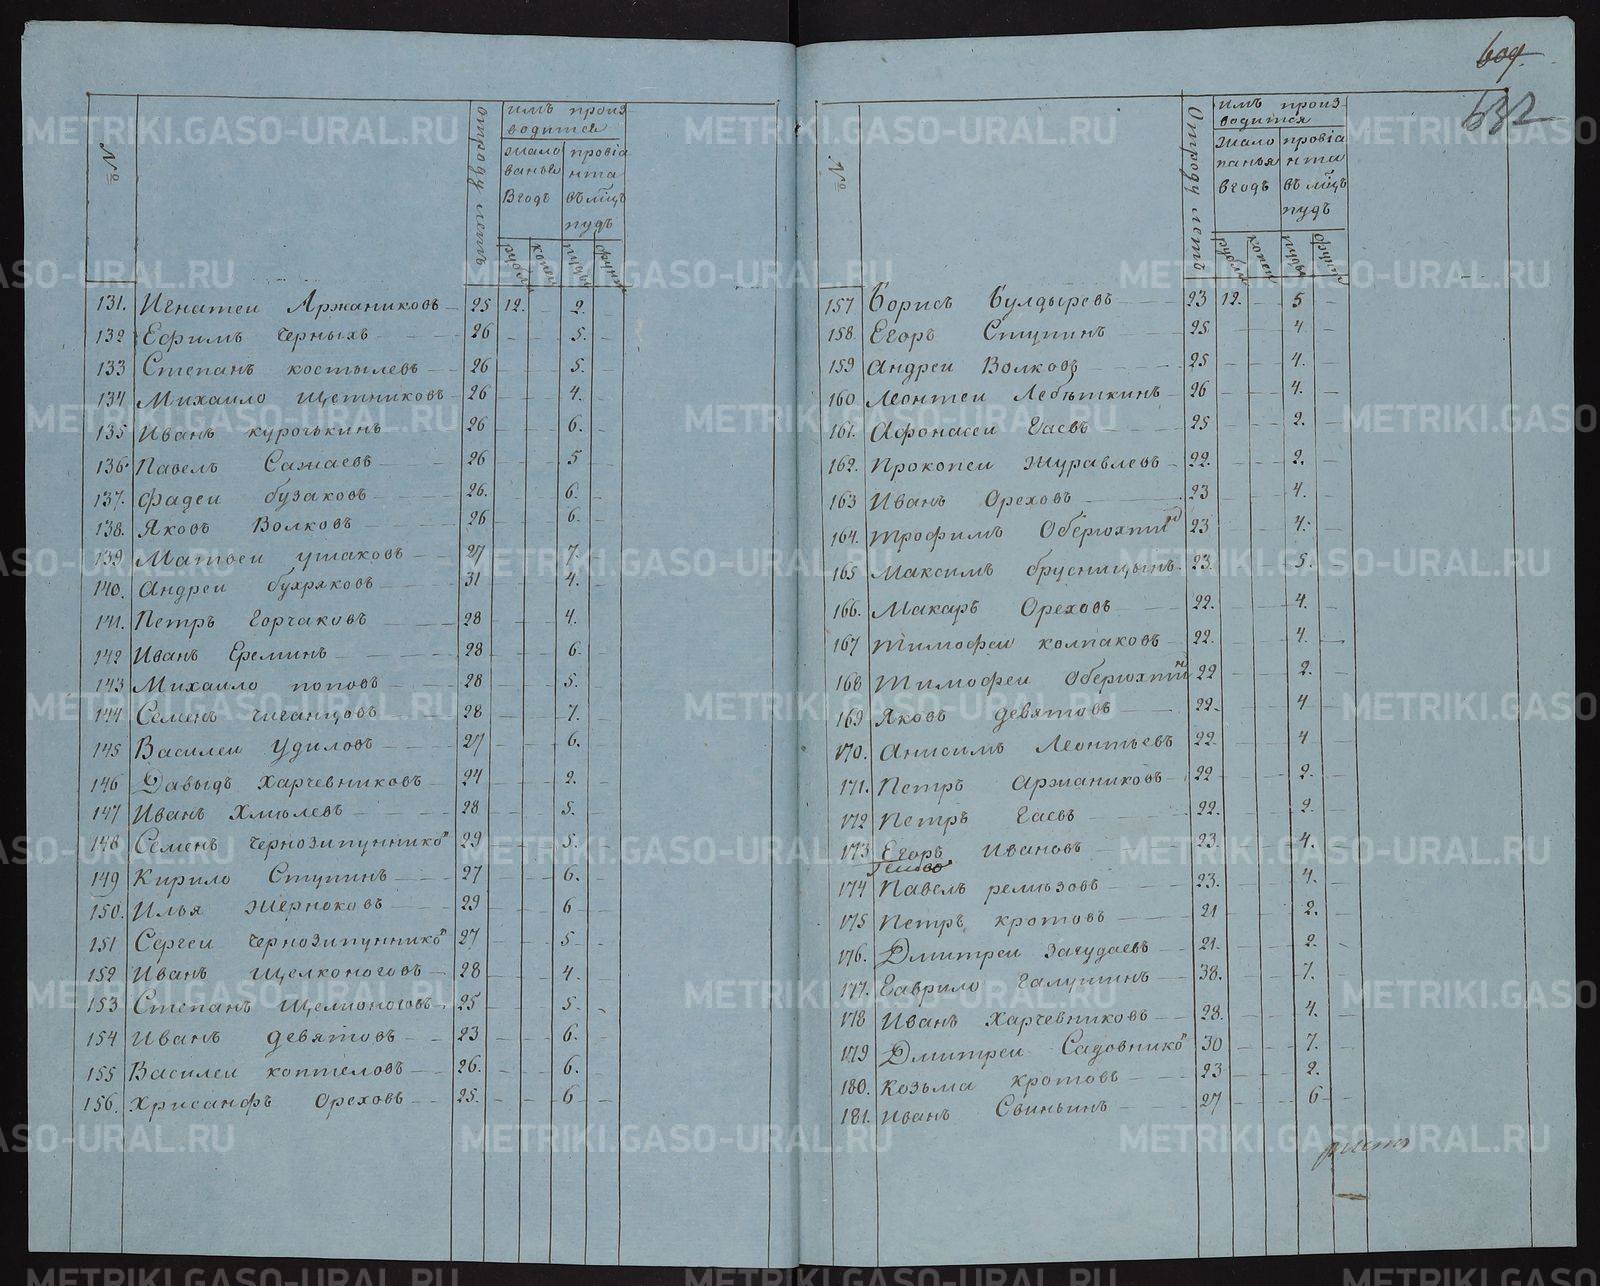 609.
632
№
отроду летъ
имъ произ
водится
жало
ванье
Вгодъ
провiа
нта
въ мѣцъ
пудъ
рубли
копеи
пуды
фунт
131. Игнатеи Аржаниковъ 25 12. 2.
132 Ефимъ Черныхъ 26 5.
133 Степанъ костылевъ 26 5.
134 Михаило Щетниковъ 26 4.
135 Иванъ курочькинъ 26 6.
136 Павелъ Сажаевъ 26 5
137. Фадеи бузаковъ 26. 6.
138. Яковъ Волковъ 26 6.
139 Матвеи ушаковъ 27 7.
140. Андреи бухряковъ 31 4.
141. Петръ Горчаковъ 28 4.
142 Иванъ Ереминъ 28 6.
143 Михаило поповъ 28 5.
144 Семенъ чиганцовъ 28 7.
145 Василеи Удиловъ 27 6.
146 Давыдъ Харчевниковъ 24 2.
147 Иванъ Хмѣлевъ 28 5.
148 Семенъ Чернозипуннико 29 5.
149 Кирило Ступинъ 27 6.
150. Илья Жерноковъ 29 6
151 Сергеи Чернозипуннико 27 5
152 Иванъ Щелконоговъ 28 4.
153 Степанъ Щелконоговъ 25 5.
154 Иванъ девятовъ 23 6.
155 Василеи коптеловъ 26. 6.
156. Хрисанфъ Ореховъ 25. 6
№
Отроду летъ
имъ произ
водится
жало
ванья
вгодъ
провiа
нта
въ мѣцъ
пудъ
рубли
копеи
пуды
фунт
157 Борисъ Булдыревъ 23 12. 5
158. Егоръ Ступинъ 25 4.
159 Андреи Волковъ 25 4.
160. Леонтеи Лебѣткинъ 26 4.
161. Афонасеи Гаевъ 25 2.
162. Прокопеи Журавлевъ 22. 2.
163 Иванъ Ореховъ 23 4.
164. Трофимъ Оберюхтин 23 4.
165 Максимъ брусницынъ 23. 5.
166. Макаръ Ореховъ 22. 4.
167 Тимофеи колпаковъ 22. 4.
168 Тимофеи Оберюхтин 22 2.
169 Яковъ девятовъ 22. 4
170. Анисимъ Леонтьевъ 22. 4
171. Петръ Аржаниковъ 22 2.
172 Петръ Гаевъ 22. 2.
173 Егоръ Ивановъ 23. 4.
174 Павелъ ремѣзовъ 23. 4.
175 Петръ кротовъ 21 2.
176. Дмитреи Загудаевъ 21. 2.
177. Гаврило Галушинъ 38. 7.
178 Иванъ Харчевниковъ 28. 4.
179 Дмитреи Садовнико 30 7.
180. Козьма кротовъ 23 2.
181. Иванъ Свиньинъ 27 6
METRIKI.GASO-URAL.RU